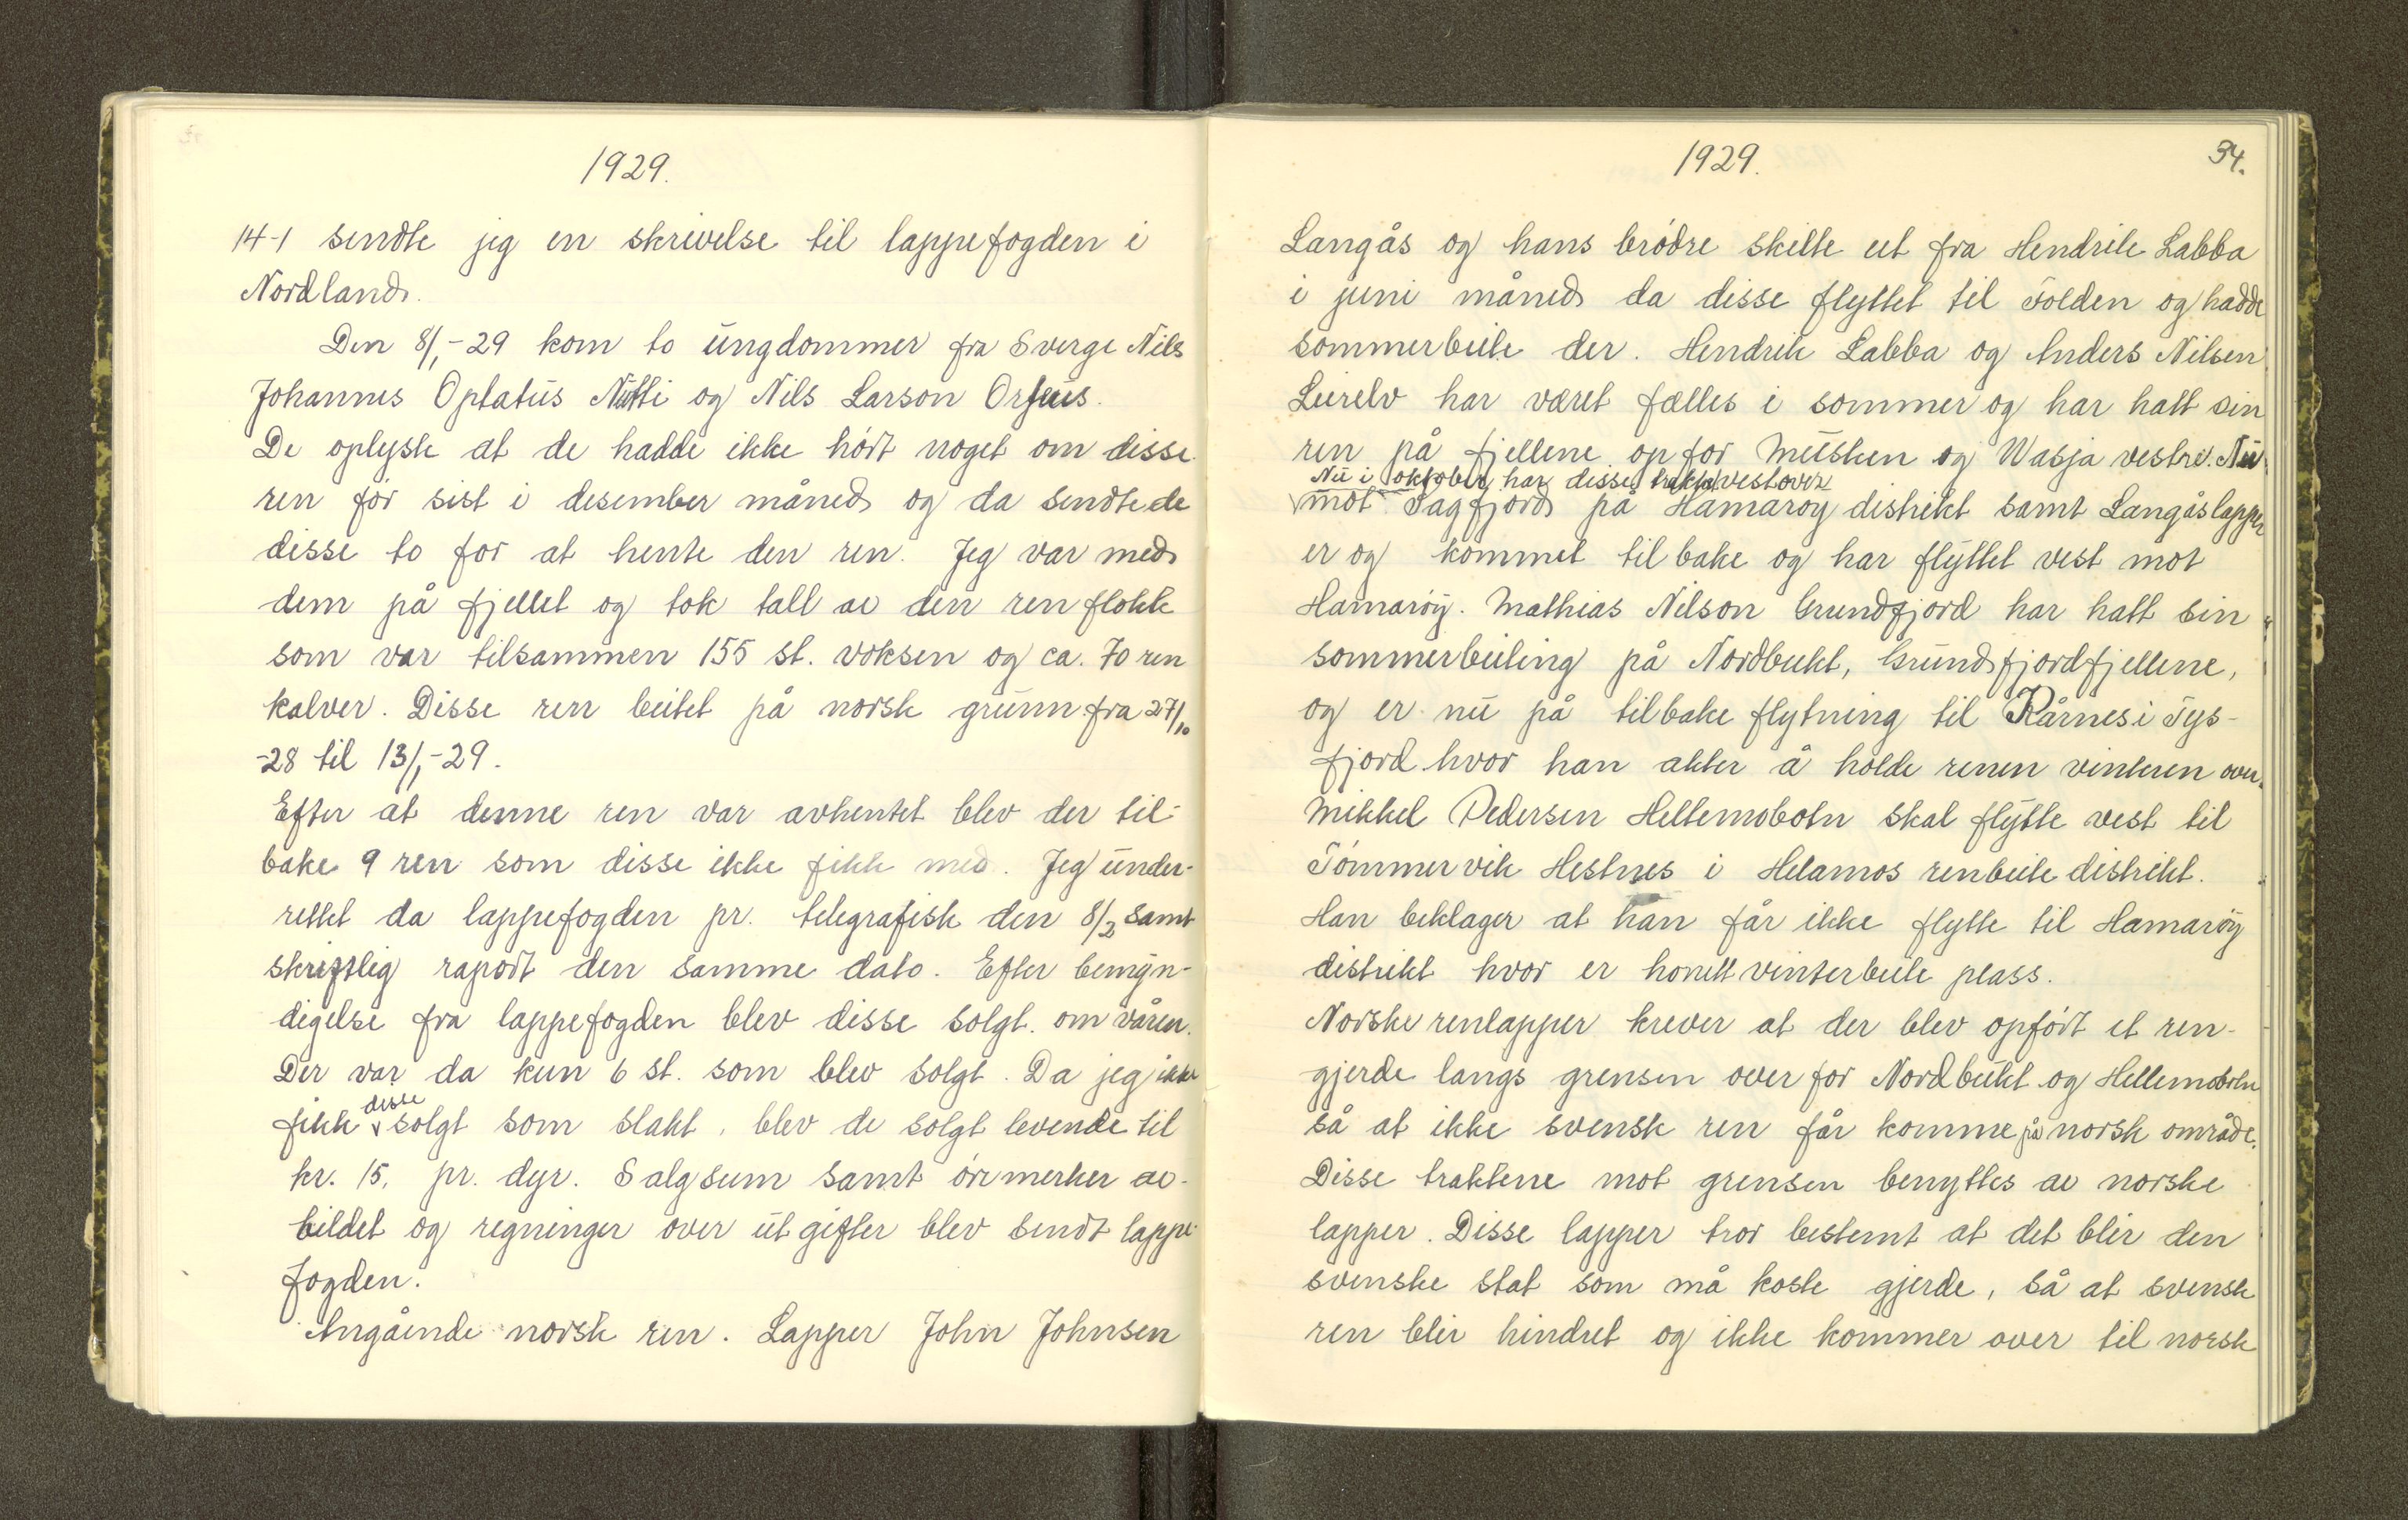 1929.
14-1 sendte jeg en skrivelse til lappefogden i
Nordland.
Den 8/1-29 kom to ungdommer fra Sverge Nils
Johannes Optatus Nutti og Nils Larson Orfeus.
De oplyste at de hadde ikke hørt noget om disse
ren før sist i desember måned og da sendte de
disse to for at hente den ren. Jeg var med
dem på fjellet og tok tall av den renflokk
som var tilsammen 155 st. voksen og ca. 70 ren
kalver. Disse ren beitet på norsk grunn fra 27/10
-28 til 13/1-29.
Efter at denne ren var avhentet blev der til-
bake 9 ren som disse ikke fikk med. Jeg under-
rettet da lappefogden pr. telegrafisk den 8/2 samt
skriftlig raport den samme dato. Efter bemyn-
digelse fra lappefogden blev disse solgt om våren.
Der var da kun 6 st. som blev solgt. Da jeg ikke
fikk disse solgt som slakt, blev de solgt levende til
kr. 15, pr. dyr. Salgsum samt øremerker av-
bildet og regninger over utgifter blev sendt lappe-
fogden.
Angående norsk ren. Lapper John Johnsen
1929. 34.
Langås og hans brødre skilte ut fra Hendrik Labba
i juni måned da disse flyttet til Folden og hadde
sommerbeite der. Hendrik Labba og Anders Nilsen
Leirelv har været fælles i sommer og har hatt sin
ren på fjellene opfor Musken og Wasja vestre. Nu
Nu i oktober har disse trekt vestover
mot Sagfjord på Hamarøy distrikt samt Langåslapper
er og kommet tilbake og har flyttet vest mot
Hamarøy. Mathias Nilson Grundfjord har hatt sin
sommerbeiting på Nordbukt, Grundfjordfjellene,
og er nu på tilbake flytning til Kårnes i Tys-
fjord hvor han akter å holde renen vinteren over.
Mikkel Pedersen Hellemobotn skal flytte vest til
Tømmervik Hestnes i Helamos renbeite distrikt.
Han beklager at han får ikke flytte til Hamarøy
distrikt hvor er honett vinterbeite plass.
Norske renlapper krever at der blev opført et ren-
gjerde langs grensen over for Nordbukt og Hellemobotn
så at ikke svensk ren får komme på norsk område.
Disse traktene mot grensen benyttes av norske
lapper. Disse lapper tror bestemt at det blir den
svenske stat som må koste gjerde, så at svensk
ren blir hindret og ikke kommer over til norsk